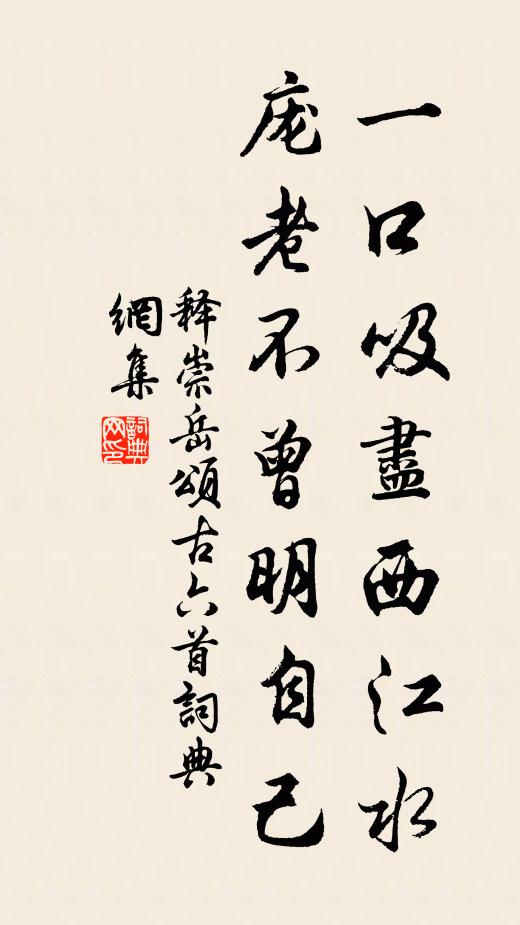 一口吸盡西江水
庞老不曾明自己
释崇岳頌古六首詞典
網集
詞典網印